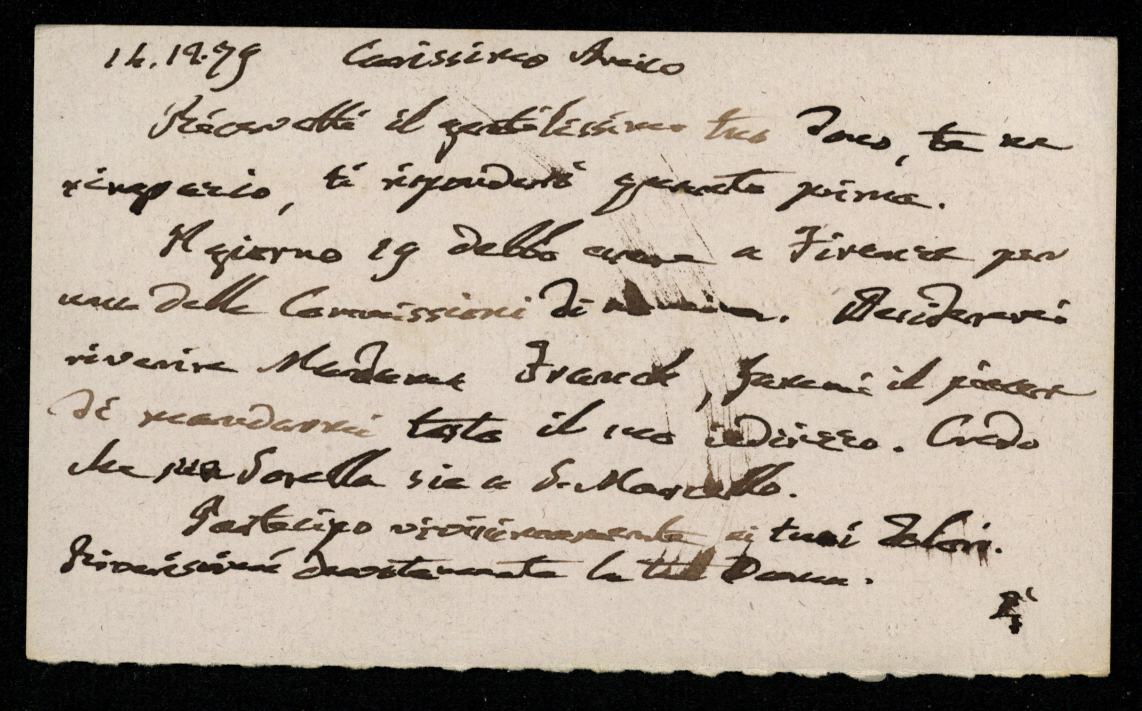 14.12.79 Carissimo Amico
Ricevetti il gentilissimo tuo dono, te ne
ringrazio, ti risponderò quanto prima.
Il giorno 19 debbo essere a Firenze per
una delle Commissioni di. Desidererei
riverire Madame Franck, farami il piacere
di mandarmi tosto il suo indirizzo. Credo
che sua Sorella sia a S. Marcello.
Partecipo vivissimamente ai tuoi dolori.
Riveriscimi devotamente la tua Donna.